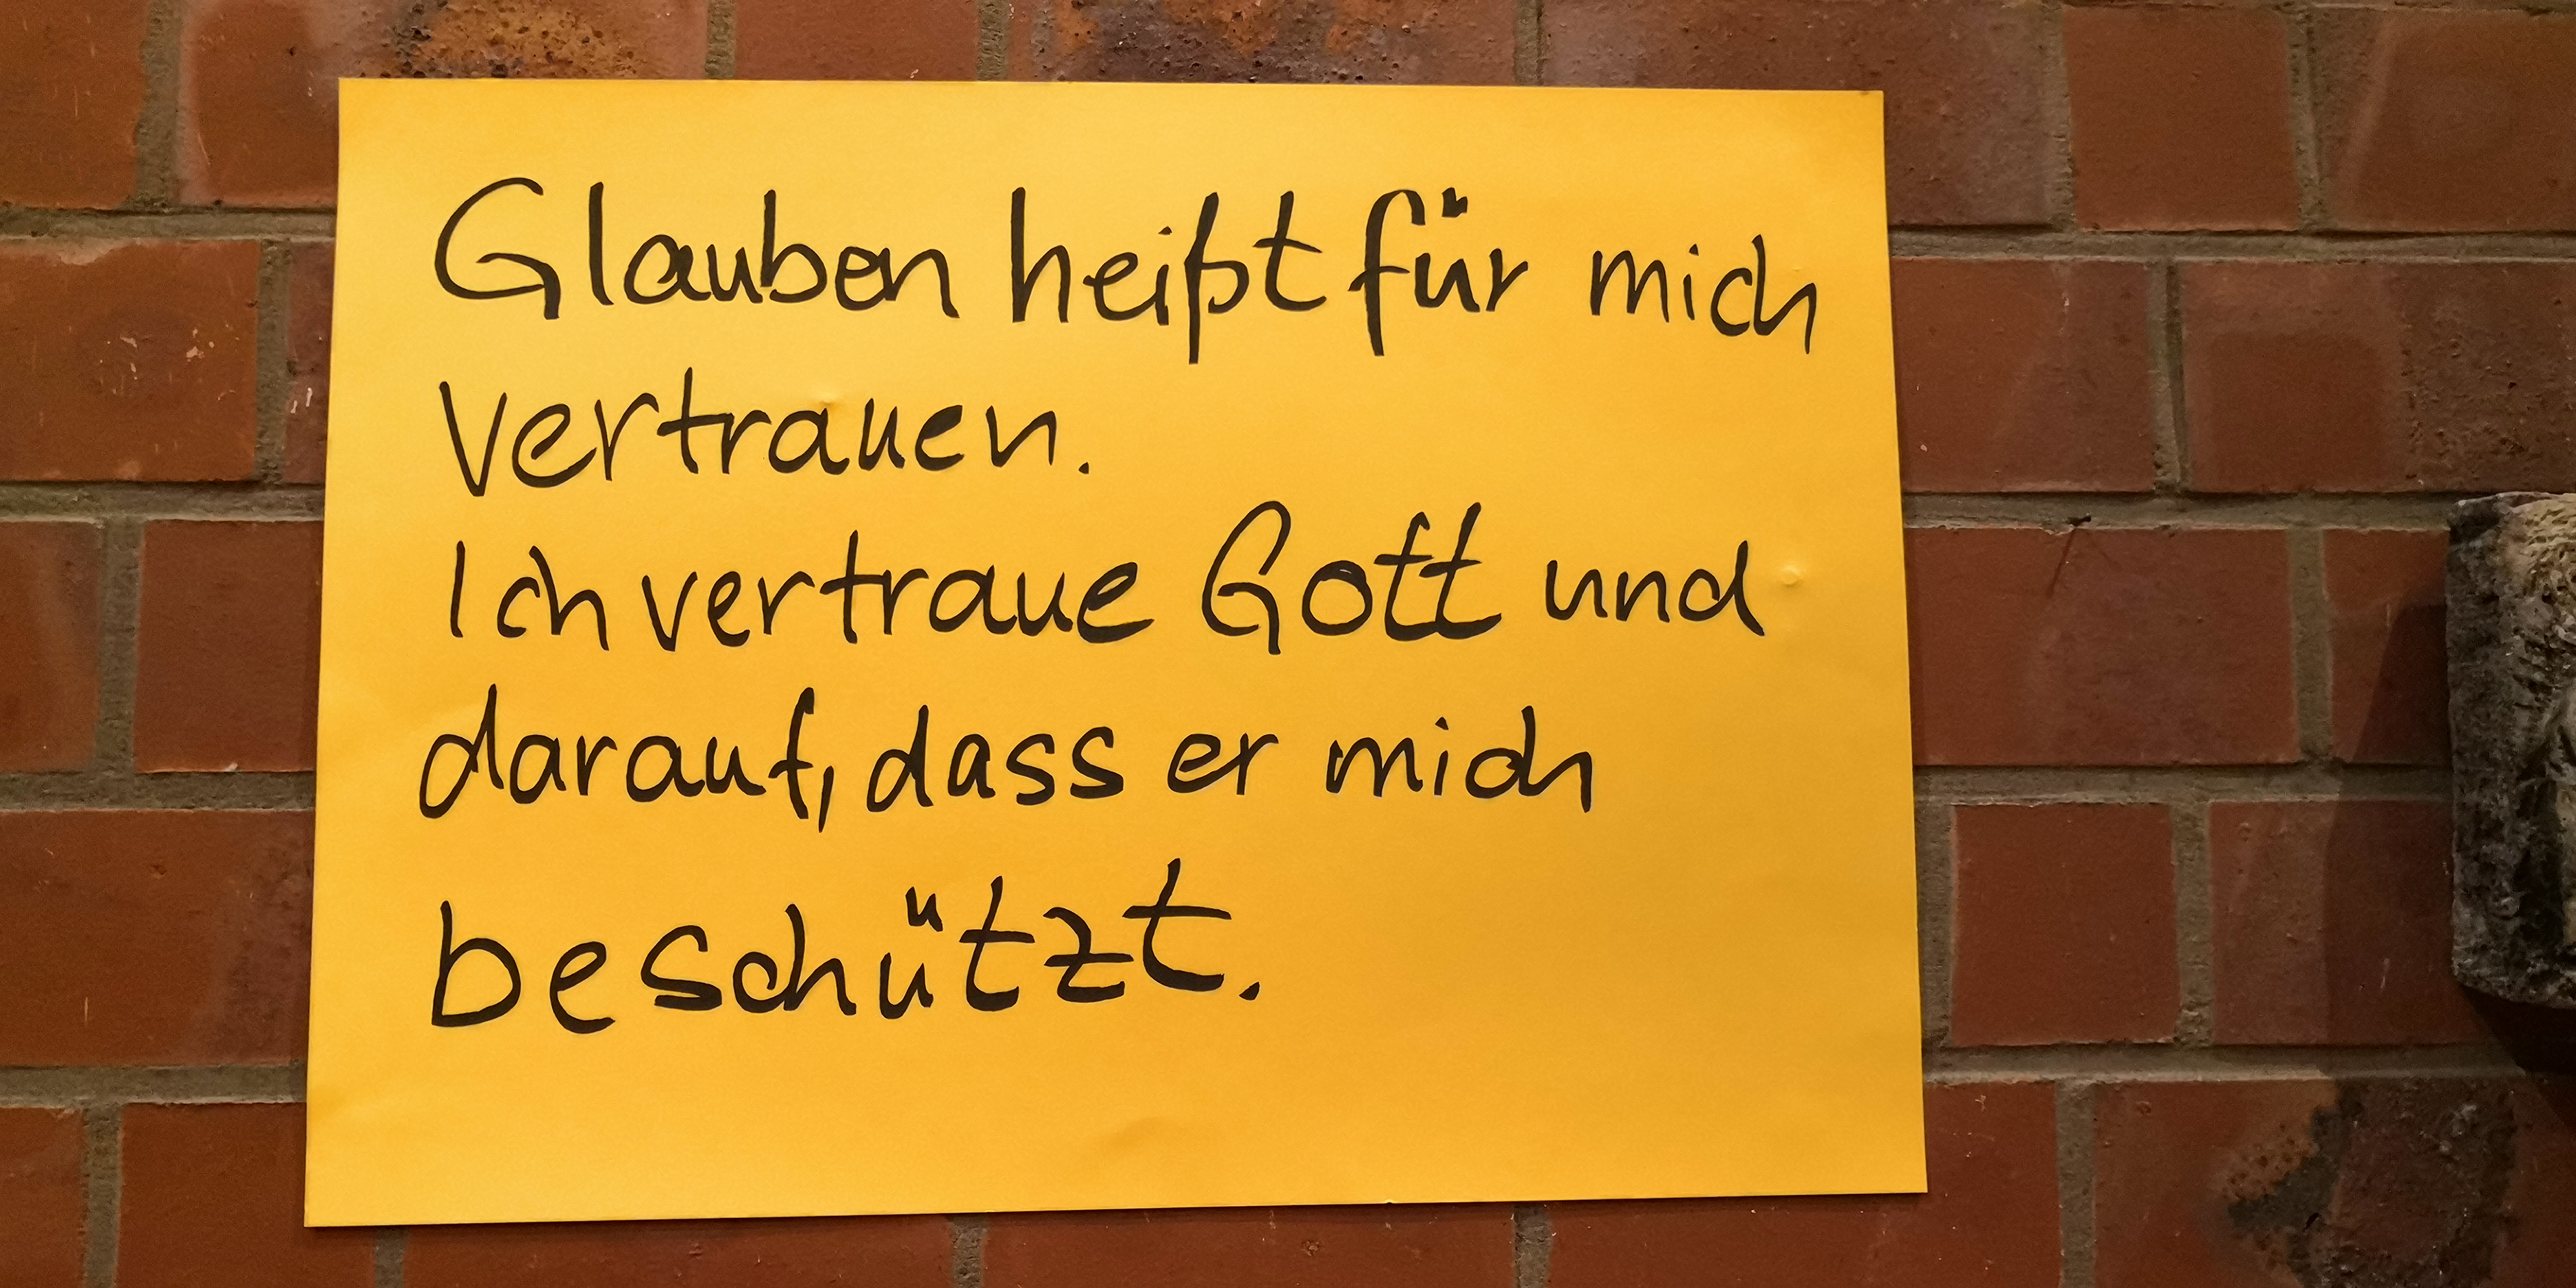 Glauben heißt für mich
vertrauen.
Ich vertraue Gott und
darauf, dass er mich
beschützt.